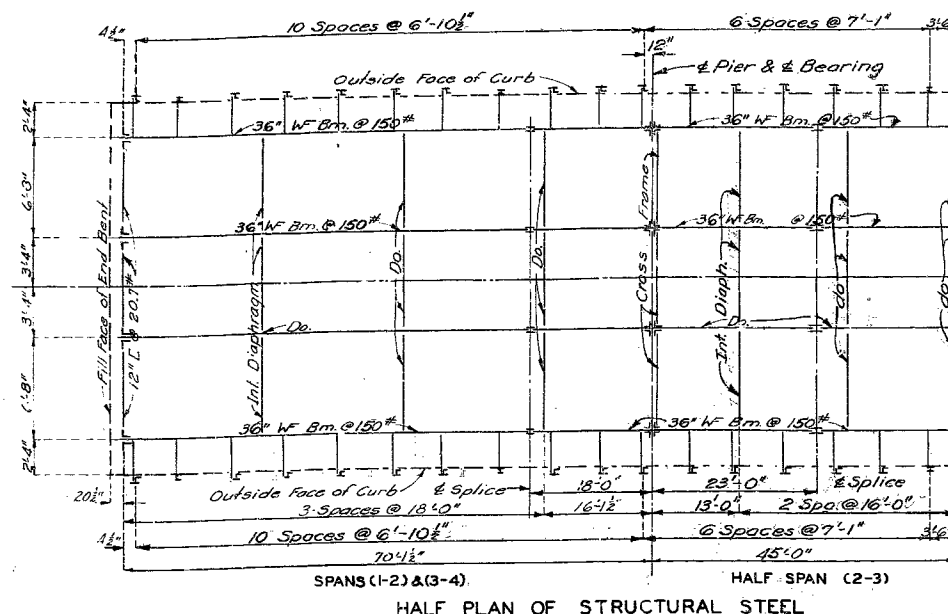 10 Spaces @ 6'-10½"
6 Spaces @ 7'-1"
4½"
3'-6
12"
℄ Pier & ℄ Bearing
Outside Face of Curb
2'-4"
36" WF Bm. @ 150#
36" WF Bm. @ 150#
6'-8"
Fill Face of End Bent
12" [ @ 20.7#
Int. Diaphragm
Do.
Do.
Cross Frame
Int. Diaph.
do
do
36" WF Bm. @ 150#
36" WF Bm. @ 150#
3'-4"
3'-4"
Do.
Do.
6'-8"
36" WF Bm. @ 150#
36" WF Bm. @ 150#
2'-4"
20½"
Outside Face of Curb
℄ Splice
18'-0"
23'-0"
℄ Splice
3 Spaces @ 18'-0"
16'-1½"
13'-0"
2 Spa @ 16'-0"
4½"
10 Spaces @ 6'-10½"
6 Spaces @ 7'-1"
3'-6
70'-1½"
45'-0"
SPANS (1-2) & (3-4)
HALF SPAN (2-3)
HALF PLAN OF STRUCTURAL STEEL